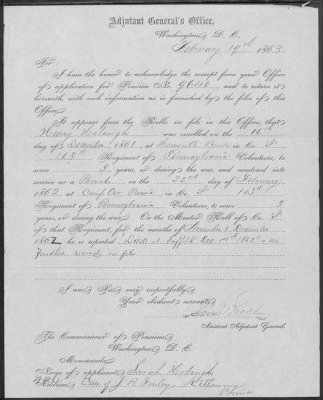 Adjutant General's Office,
Washington, D. C.
February 19th 1863
Sir:
I have the honor to acknowledge the receipt from your Office
of application for Pension No. and to return it
herewith, with such information as is furnished by the files of this
Office.
It appears from the Rolls on file in this Office, that
Henry was enrolled on the 16th
day of December 1861, at in Co. F
103d Regiment of Pennsylvania Volunteers, to
serve 3 years, or during the war, and mustered into
service as a Private on the 22nd day of February
1862, at in Co. F 103d
Regiment of Pennsylvania Volunteers, to serve 3
years, or during the war. On the Muster Roll of Co. F
of that Regiment, for the months of November & December
1862 he is reported Suffolk
Further record on file
I am, Sir, very respectfully,
Your obedient servant,
Assistant Adjutant General
The Commissioner of Pensions,
Washington, D. C.
Memoranda.
Name of applicant, Sarah
Address, Care of J. Kittanning